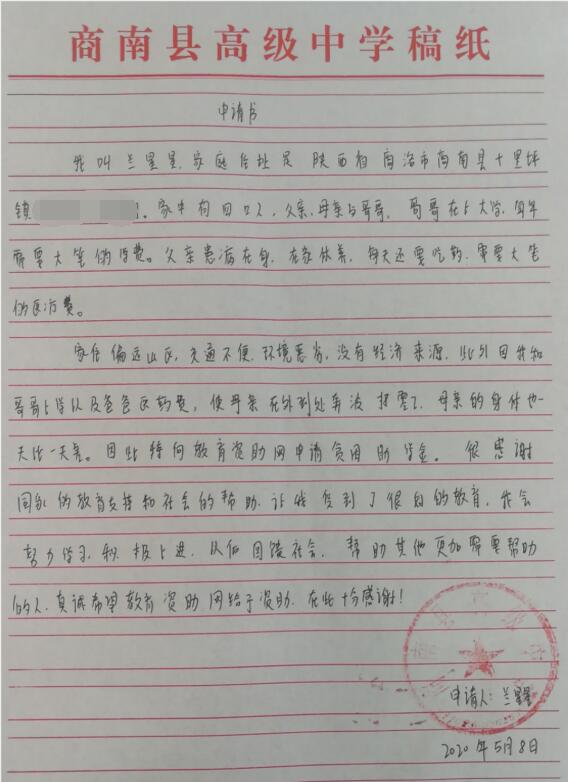 商南县高级中学稿纸
申请书
我叫兰星星,家庭住址是 陕西省商洛市商南县十里坪
镇。家中有四口人,父亲、母亲与哥哥。哥哥在上大学,每年
需要大笔的学费。父亲患病在身,在家休养,每天还要吃药,需要大笔
的医疗费。
家住偏远山区,交通不便,环境恶劣,没有经济来源,此外因我和
哥哥上学以及爸爸医药费,使母亲在外到处奔波打零工,母亲的身体也一
天比一天差。因此特向教育资助网申请贫困助学金。很感谢
国家的教育支持和社会的帮助,让我受到了很好的教育,我会
努力学习,积极上进,从而回馈社会,帮助其他更加需要帮助
的人,真诚希望教育资助网给予资助,在此十分感谢!
申请人:兰星星
2020年5月8日